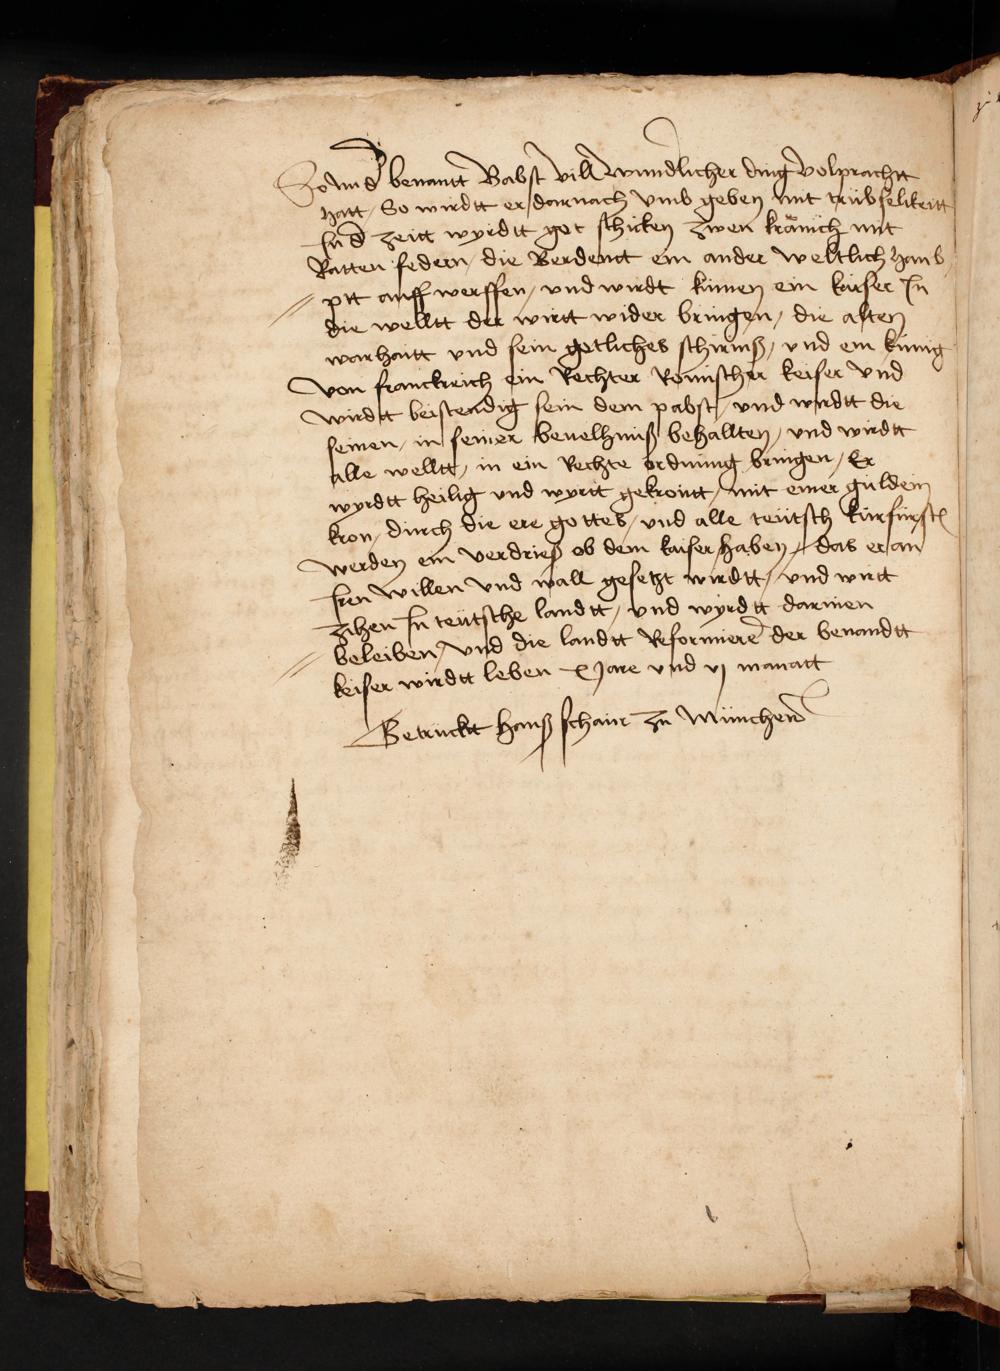 So nu d benantt Babst vill wundlicher ding volprachtt
hatt, So wirdtt er darnach vmb geben mit trübselikeitt
In d zeitt wyrdtt got schicken zwen kränich mit
Ratten federn, die Berdeutt ein ander weltlich haub
ptt auff werffen, vnd wirdt kumen ein kaiser In
die welltt der wirtt wider bringen, die alten
warhaitt vnd sein gotliches schirmß, vnd ein künig
von franckrich ein Rechter Romischer keiser vnd
wirdtt beistendig sein dem pabst, vnd wirdtt die
seinen, in seiner beuelhniß behallten, vnd wirdtt
alle welltt, in ein Rechte ordnung bringen, Er
wyrdtt heilig vnd wyrtt gekrontt, mit einer gulden
kron, durch die ere gottes, vnd alle teütsch kurfurst
werden ein verdrieß ob dem kaiser haben, das er an
Iren willen vnd wall gesetzt wirdtt, vnd wirtt
zihen In teütsche landtt, vnd wyrdtt darinen
beleiben, vnd die landtt Reformiere der benandtt
keiser wirdtt leben x Jare vnd vj manatt
Getrucktt hanß schaur zu München